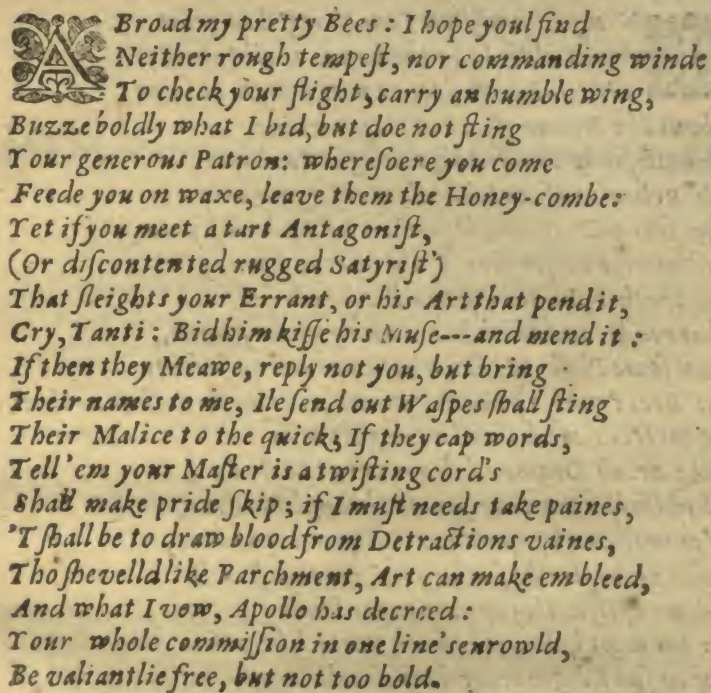 ABroad my pretty Bees : I hope youl find
Neither rough tempeſt, nor commanding winde
To check your flight, carry an humble wing,
Buzze boldly what I bid, but doe not ſting
Your generous Patron: whereſoere you come
Feede you on waxe, leave them the Honey-combe:
Yet if you meet a tart Antagoniſt,
(Or diſcontented rugged Satyriſt')
That ſleights your Errant, or his Art that pend it,
Cry, Tanti : Bid him kiſſe his Muſe---and mend it :
If then they Meawe, reply not you, but bring
Their names to me, Ile ſend out Waſpes ſhall ſting
Their Malice to the quick; If they cap words,
Tell 'em your Maſter is a twiſting cord's
Shall make pride ſkip ; if I muſt needs take paines,
'T ſhall be to draw blood from Detractions vaines,
Tho ſhevelld like Parchment, Art can make em bleed,
And what I vow, Apollo has decreed :
Your whole commiſſion in one line's enrowld,
Be valiantlie free, but not too bold.